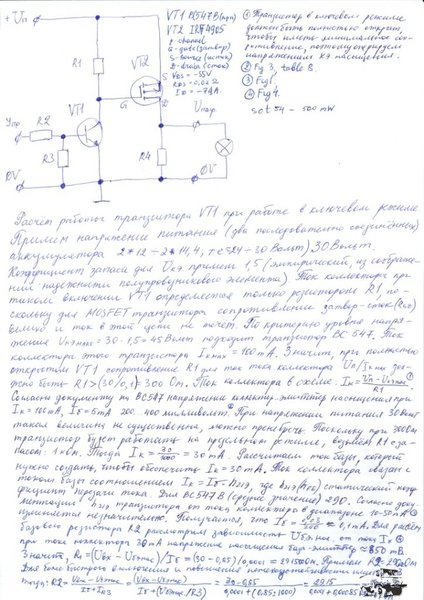 +Uп
R1
VT2
VT1
G
S
D
Uупр
R2
R3
R4
0V
0V
VT1 BC547B (npn)
VT2 IRF4905
p-channel
G-gate (затвор)
S-source (исток)
D-drain (сток)
VDS = -55V
RDS = 0,02 Ω
ID = -74A
① Транзистор в ключевом режиме
должен быть полностью открыт,
чтобы иметь минимальное со-
противление, поэтому
напряжением кэ насыщения.
② Fig 3, table 8.
③ Fig 1,
④ Fig 4.
sot54 - 500 mW
Расчет работы транзистора VT1 при работе в ключевом режиме
Примем напряжение питания (два последовательно соединённых
аккумулятора 2*12 ÷ 2*14,4, т.е 24÷30 Вольт) 30 Вольт.
Коэффициент запаса для Uкэ примем 1,5 (эмпирический, из соображе-
ний надежности полупроводникового элемента). Ток коллектора при
таком включении VT1 определяется только резистором R1 по-
скольку для MOSFET транзистора сопротивление затвор-сток
велико и ток в этой цепи не течет. По критерию уровня напря-
жения 30 · 1,5 = 45 Вольт подходит транзистор BC 547. Ток
коллектора этого транзистора Iк max = 100 mA. Значит, при полностью
открытом VT1 сопротивление R1 для тока коллектора дол-
жно быть R1 > (30/0,1) 300 Ом. Ток коллектора в схеме: Iк = ①
Согласно документу на BC547 напряжение коллектор-эмиттер насыщения при
Iк = 100 mA, Iб = 5 mA 200..400 милливольт ②. При напряжении питания 30 Вольт
такая величина не существенна, можно пренебречь. Поскольку при 300 Ом
транзистор будет работать на предельном режиме, возьмём R1 с за-
пасом: 1 кОм. Тогда Iк = 30/1000 = 30 mA. Рассчитаем ток базы, который
нужно создать, чтобы обеспечить Iк = 30 mA. Ток коллектора связан с
током базы соотношением Iк = Iб · h21э, где h21э статический коэф-
фициент передачи тока. Для BC547B (среднее значение) 290. Согласно доку-
ментации h21э транзистора от тока коллектора в диапазоне 10-50 mA ③
изменяется незначительно. Получается, что Iб = 0,03/290 = 0,1 mA. Для расчёта
базового резистора R2 рассмотрим зависимость Uбэ нас. от тока Iк ④
при токе коллектора 30 mA напряжение насыщения база-эмиттер ≈ 850 mВ.
Значит, R2 = /Iб = (30-0,85)/0,0001 = 291500 Ом.
Для более быстрого выключения и повышения
тогда: R2 =